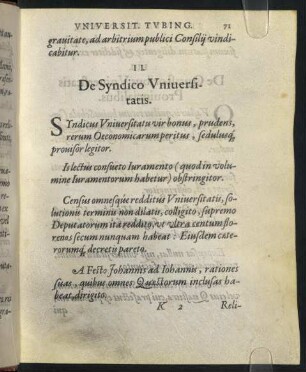 VNIVERSIT. TVBING. 71
grauitate, ad arbitrium publici Consilij vindi-
cabitur.
II.
De Syndico Vniuersi-
tatis.
SYndicus Vniuersitatis vir bonus, prudens,
rerum Oeconomicarum peritus, sedulusq,
prouisor legitor.
Is lectus consueto Iuramento (quod in volu-
mine Iuramentorum habetur) obstringitor.
Census omnesque redditus Vniuersitatis, so-
lutionis terminis non dilatis, colligito: supremo
Deputatorum ita reddito, vt vltra centum flo-
renos secum nunquam habeat: Eiusdem cete-
rorumq, decretis pareto.
A Festo Iohannis ad Iohannis, rationes
suas, quibus omnes Quæstorum inclusas ha-
beat, dirigito.
K 2 Reli-